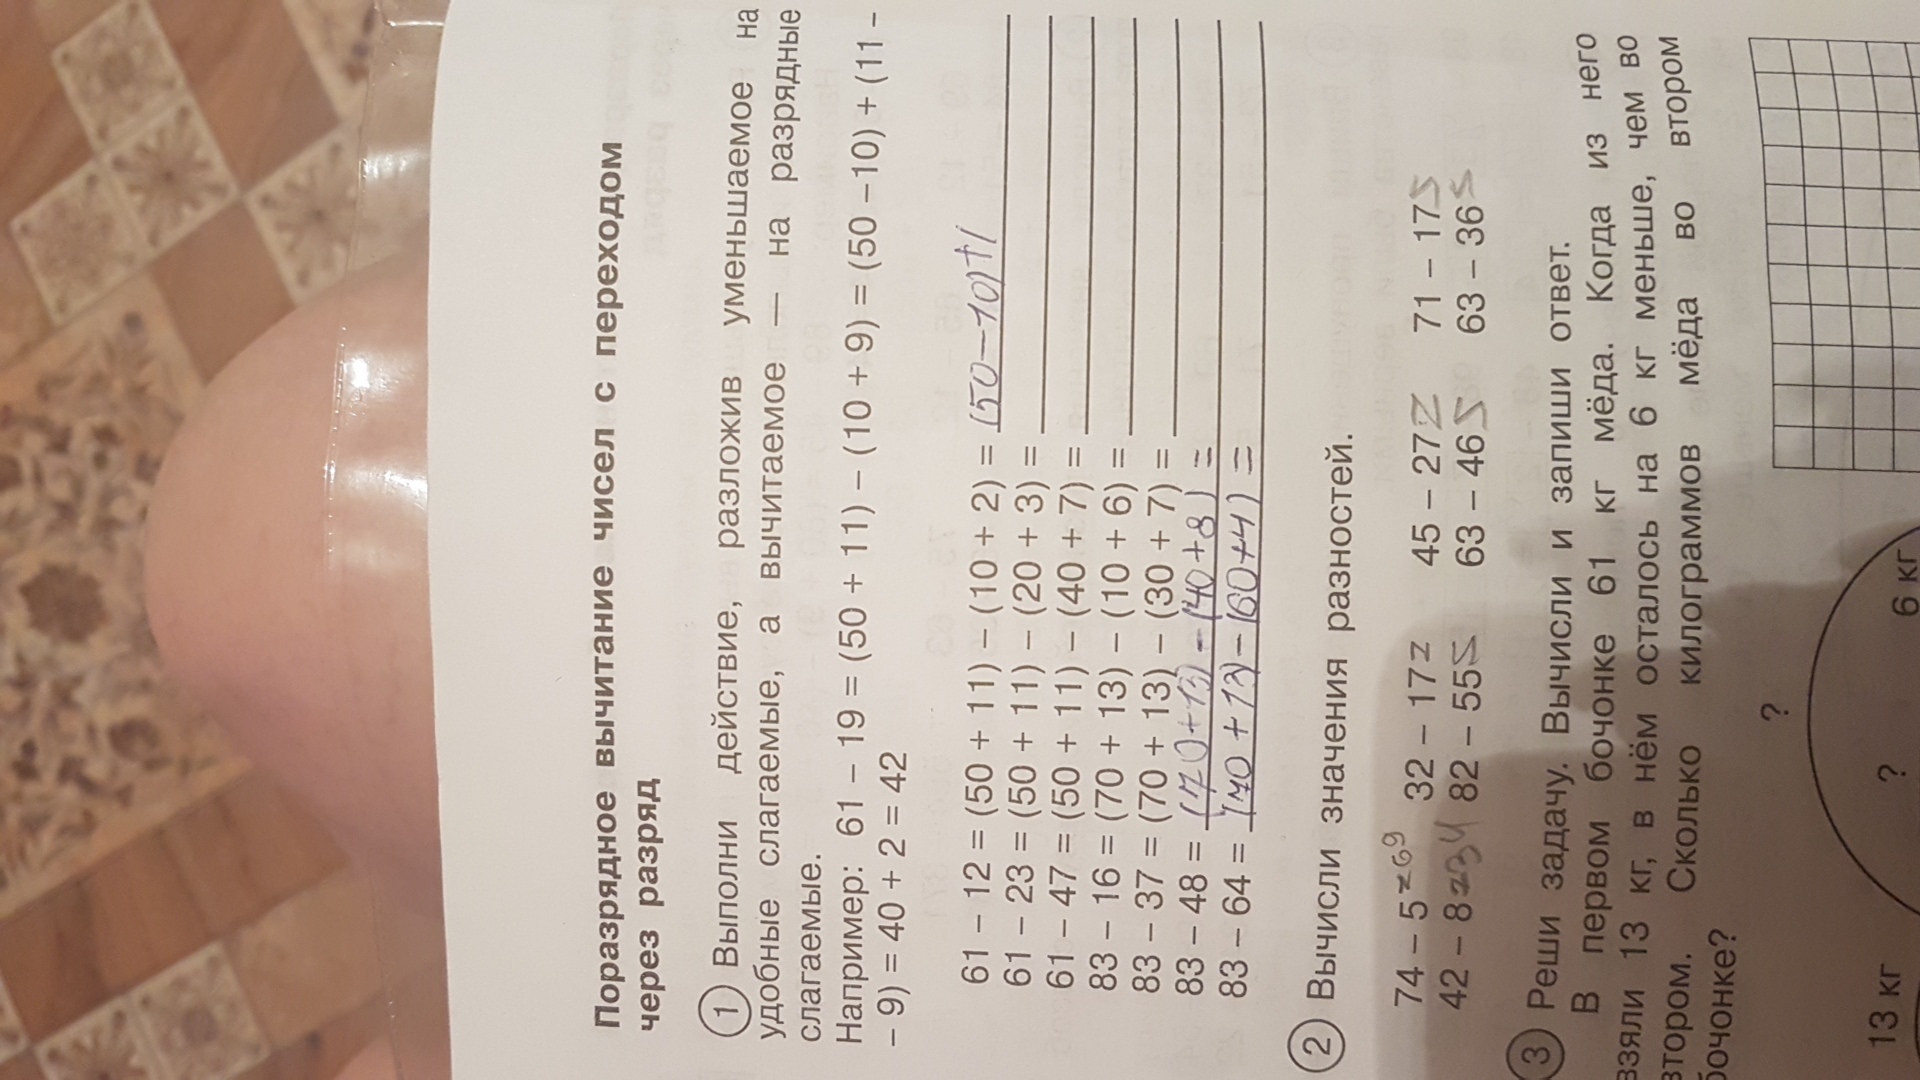 Поразрядное вычитание чисел с переходом
через разряд
1 Выполни действие, разложив уменьшаемое на
удобные слагаемые, а вычитаемое – на разрядные
слагаемые.
Например: 61 – 19 = (50 + 11) – (10 + 9) = (50 – 10) + (11 –
– 9) = 40 + 2 = 42
61 – 12 = (50 + 11) – (10 + 2) = (50–10)+1
61 – 23 = (50 + 11) – (20 + 3) =
61 – 47 = (50 + 11) – (40 + 7) =
83 – 16 = (70 + 13) – (10 + 6) =
83 – 37 = (70 + 13) – (30 + 7) =
83 – 48 = (70+13)–(40+8) =
83 – 64 = (70+13)–(60+4) =
2 Вычисли значения разностей.
74 – 5 =69 32 – 17= 45 – 27= 71 – 17=
42 – 8=34 82 – 55= 63 – 46= 63 – 36=
3 Реши задачу. Вычисли и запиши ответ.
В первом бочонке 61 кг мёда. Когда из него
взяли 13 кг, в нём осталось на 6 кг меньше, чем во
втором. Сколько килограммов мёда во втором
бочонке?
?
13 кг ? 6 кг